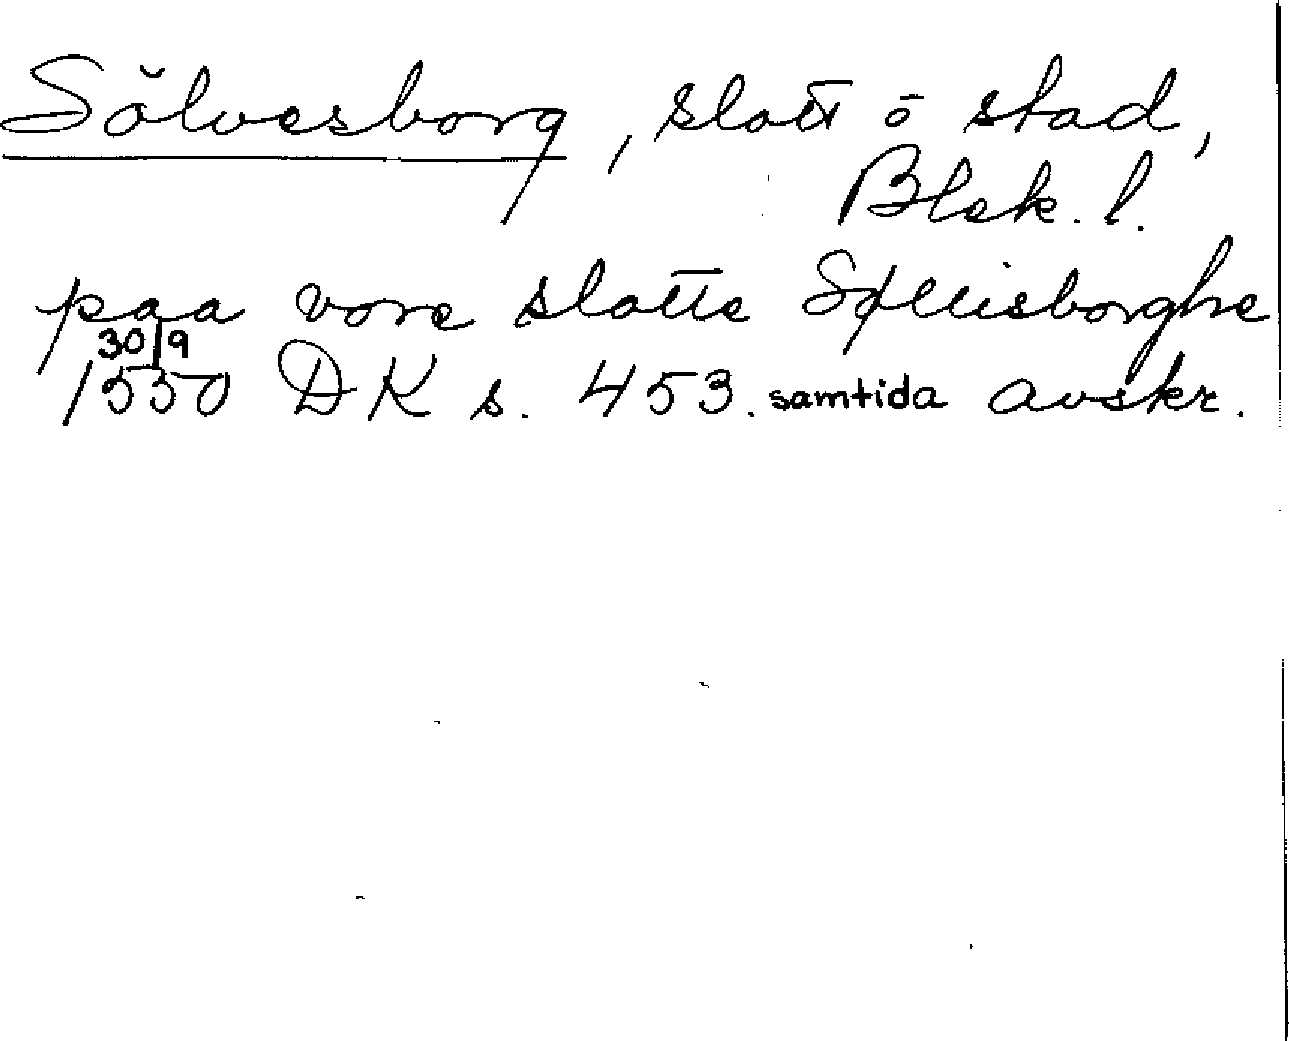 Sölvesborg, slott o stad,
Blek. l.
paa vore slotte Søluisborghe
30/9
1550 DK s. 453. samtida avskr.